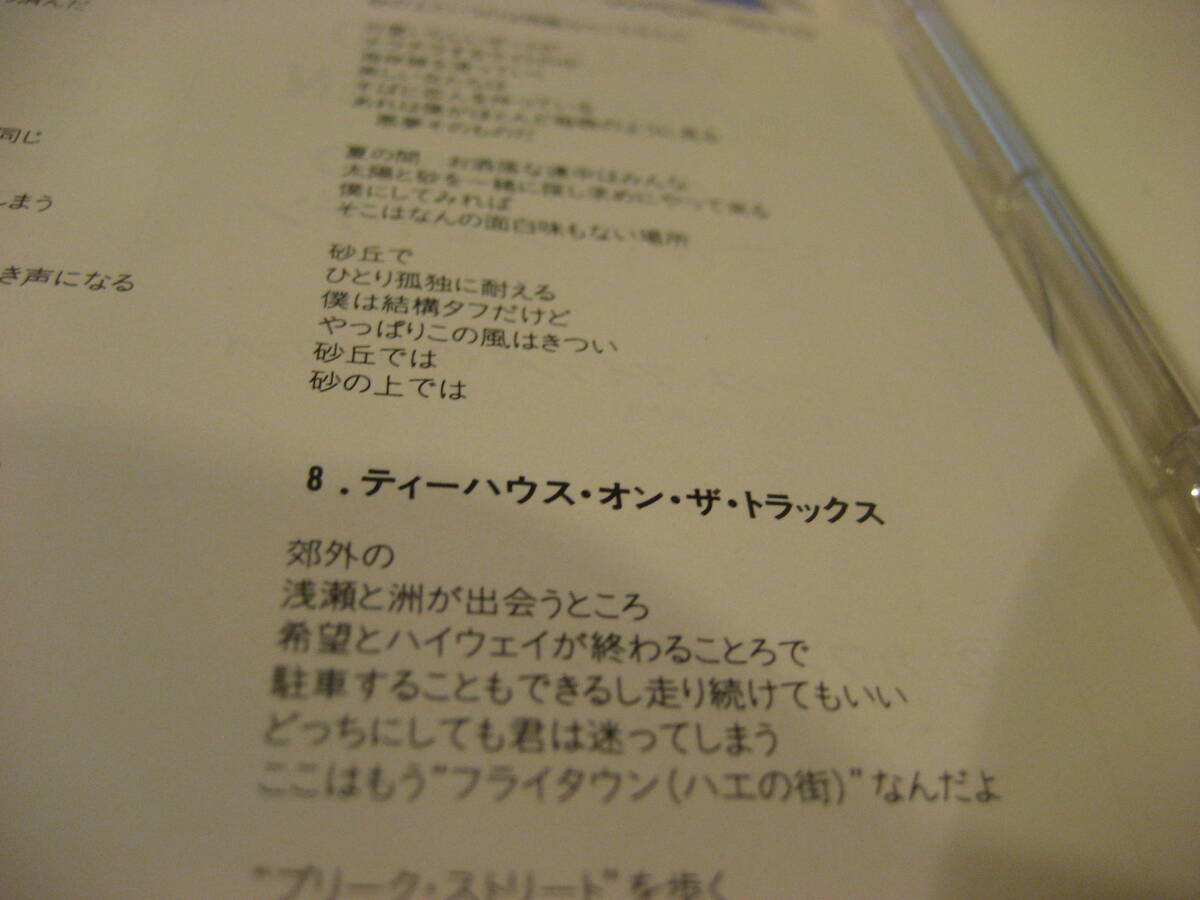 同じ
しまう
き声になる
悪夢そのものだ
夏の間　お洒落な連中はみんな
太陽と砂を一緒に探し求めにやって来る
僕にしてみれば
そこはなんの面白味もない場所
砂丘で
ひとり孤独に耐える
僕は結構タフだけど
やっぱりこの風はきつい
砂丘では
砂の上では
8．ティーハウス・オン・ザ・トラックス
郊外の
浅瀬と洲が出会うところ
希望とハイウェイが終わることろで
駐車することもできるし走り続けてもいい
どっちにしても君は迷ってしまう
ここはもう"フライタウン(ハエの街)"なんだよ
"ブリーク・ストリート"を歩く